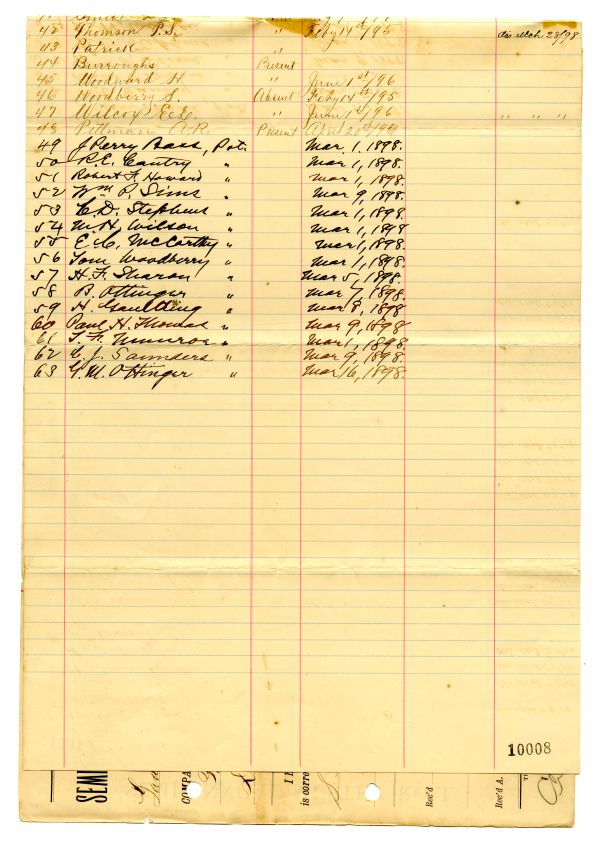 42 Thomson P.S. " Feby 14th/95 dis Mch 28/98
43 Patrick "
44 Burroughs Present
45 Woodward H " June 1st/96
46 Woodberry S. Absent Feby 14th/95
47 Wilcox E.C. " June 1st/96 " " "
48 Pittman A.R. Present April 20th/94
49 J Perry Bass, Pvt. Mar. 1. 1898.
50 R.E. Cantry " Mar 1, 1898.
51 Robert F. Howard " Mar 1, 1898.
52 Wm P. Sims " Mar 9, 1898.
53 C.D. Stephens " Mar 1, 1898.
54 W.H. Wilson " Mar 1, 1898
55 E.C. McCarthy " Mar 1, 1898.
56 Tom Woodberry " Mar 1, 1898.
57 H.F. Sharon " Mar 5, 1898.
58 B. Ottinger " Mar 7, 1898
59 H. Gaulding " Mar 8, 1898.
60 Paul H. Thomas " Mar 9, 1898
61 T.F. Munroe " Mar 1, 1898.
62 C.J. Saunders " Mar 9, 1898.
63 G.M. Ottinger " Mar 16, 1898.
10008
SEMI
COMPA
I
is corre
Rec'd
Rec'd A.